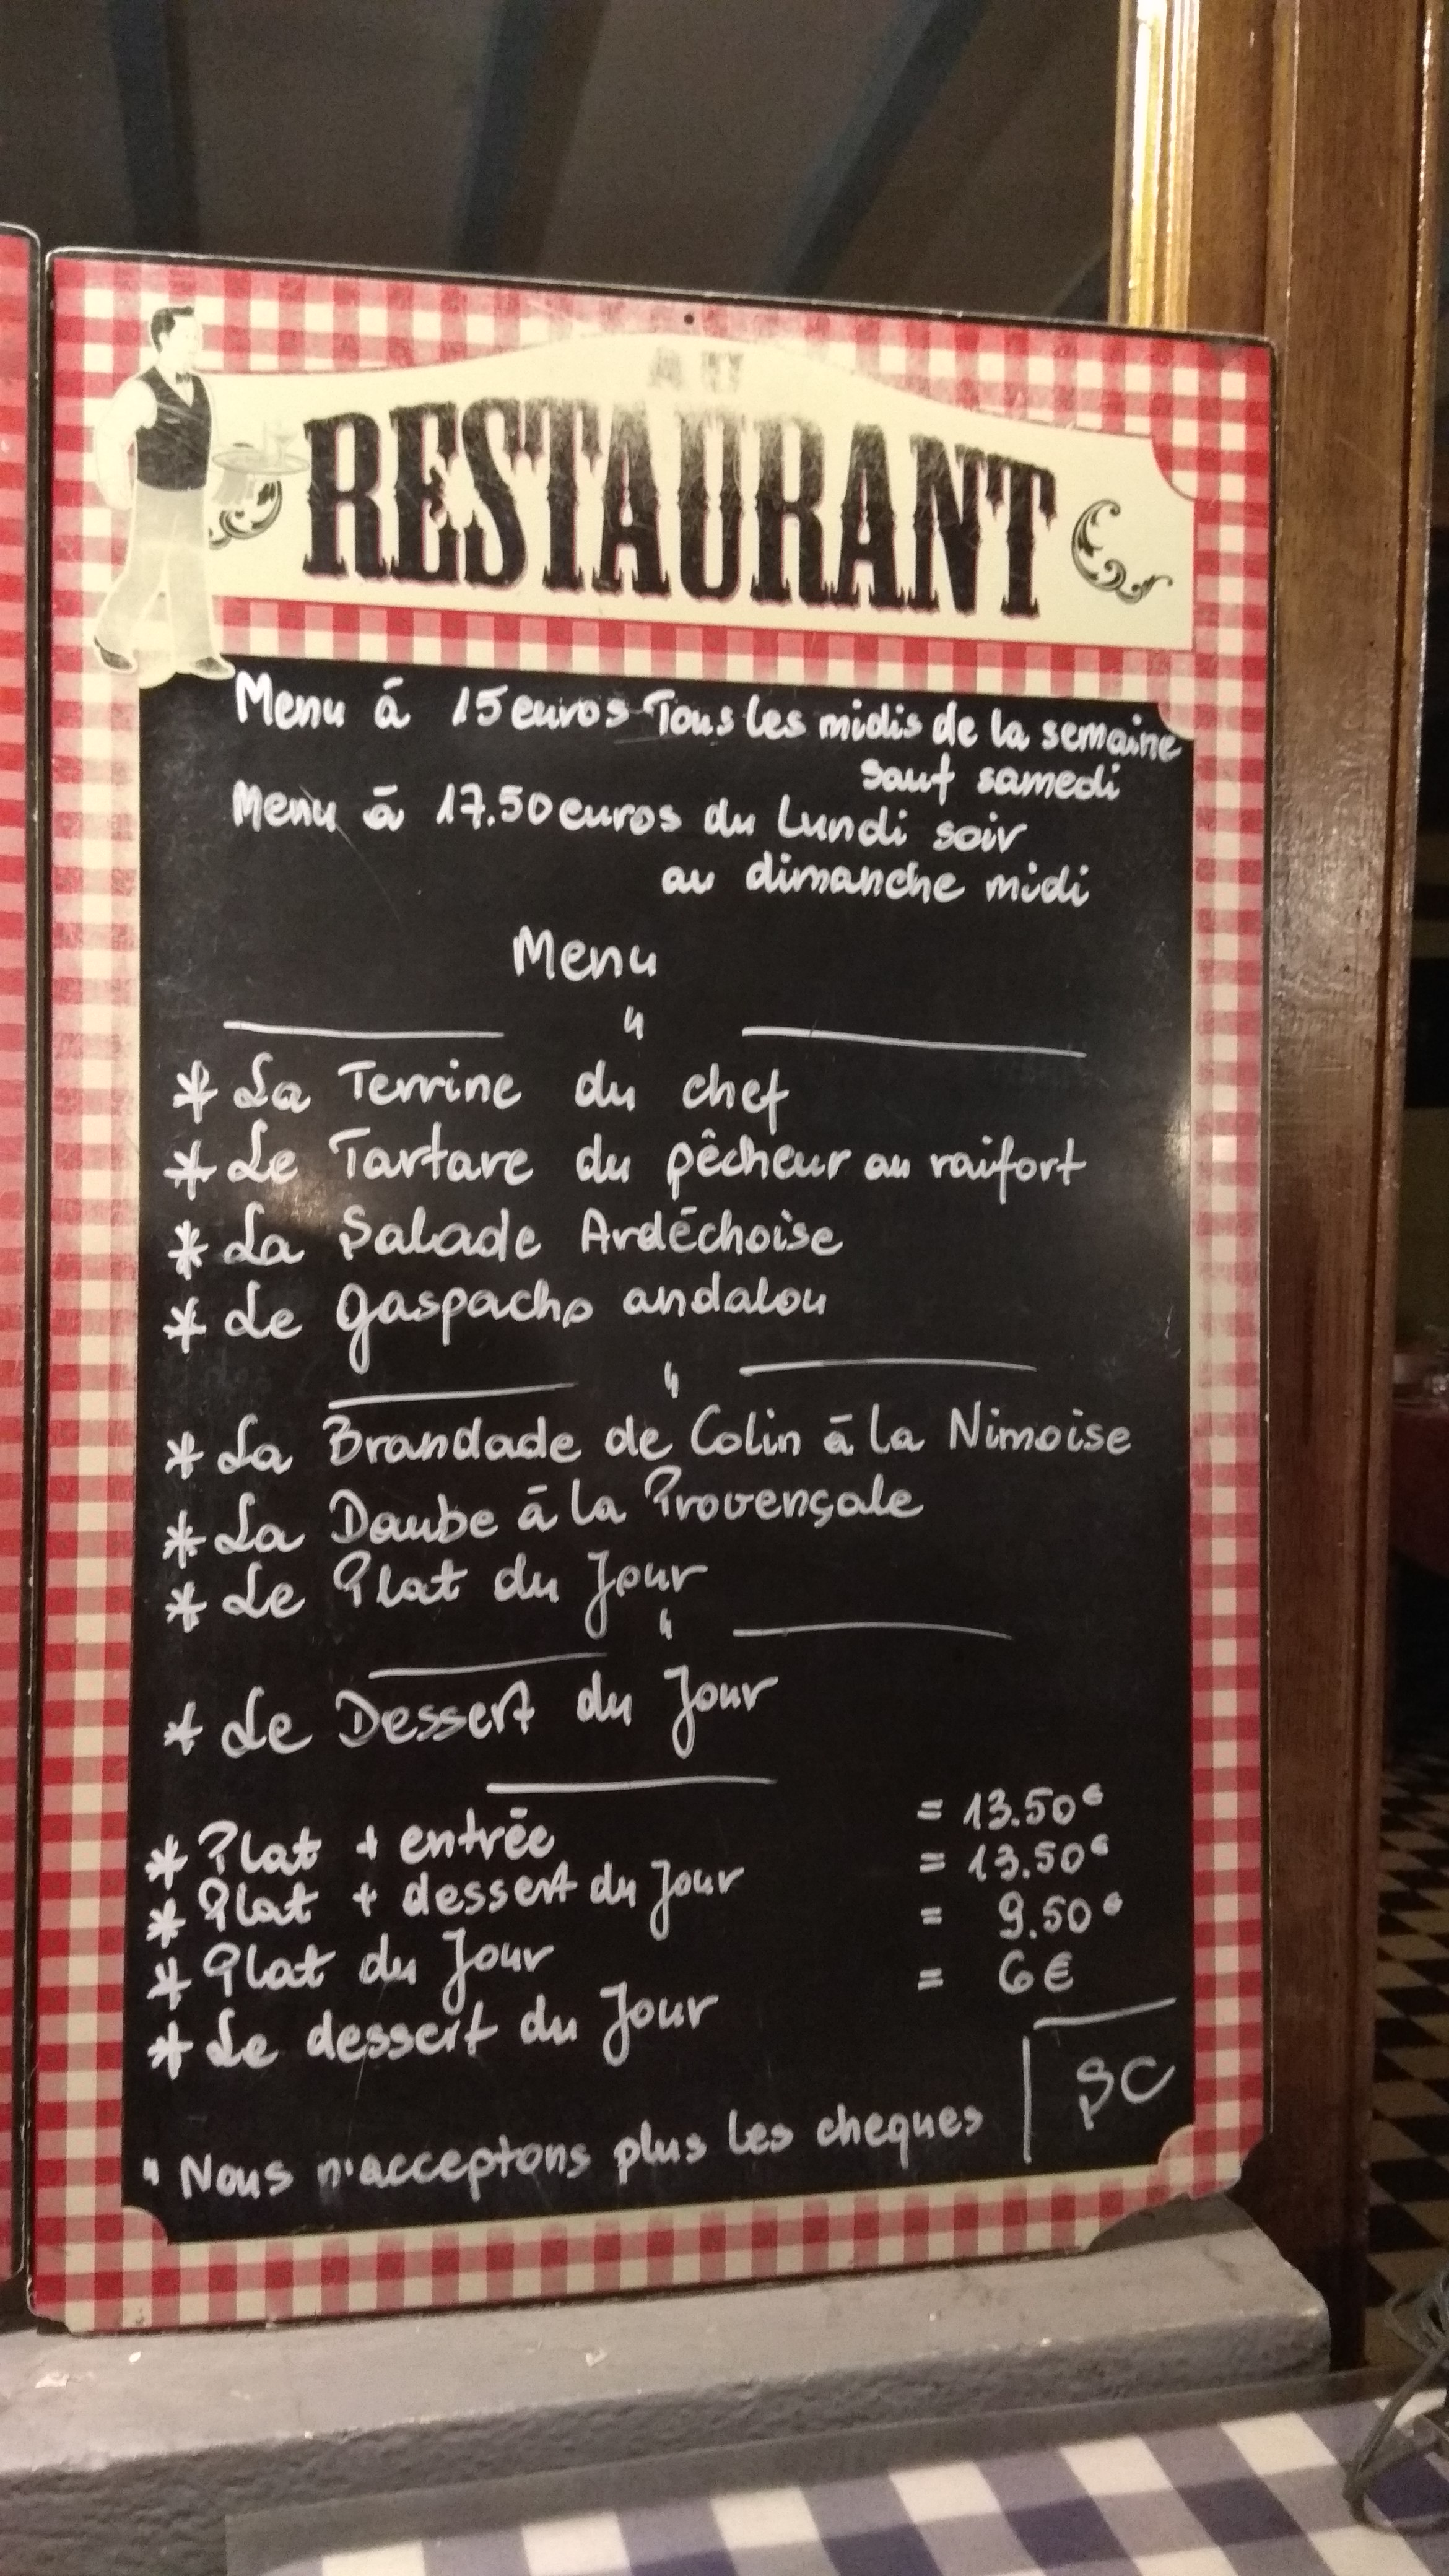 AU
RESTAURANT
Menu á 15 euros Tous les midis de la semaine
sauf samedi
Menu ā 17.50 euros du Lundi soir
au dimanche midi
Menu
* La Terrine du chef
* Le Tartare du pêcheur au raifort
* La Salade Ardēchoise
* Le gaspacho andalou
* La Brandade de Colin ā la Nimoise
* La Daube ā la Provençale
* Le Plat du Jour
* Le Dessert du Jour
* Plat + entrēe = 13.50€
* Plat + dessert du Jour = 13.50€
* Plat du Jour = 9.50€
* Le dessert du Jour = 6€
" Nous n'acceptons plus les cheques
SC